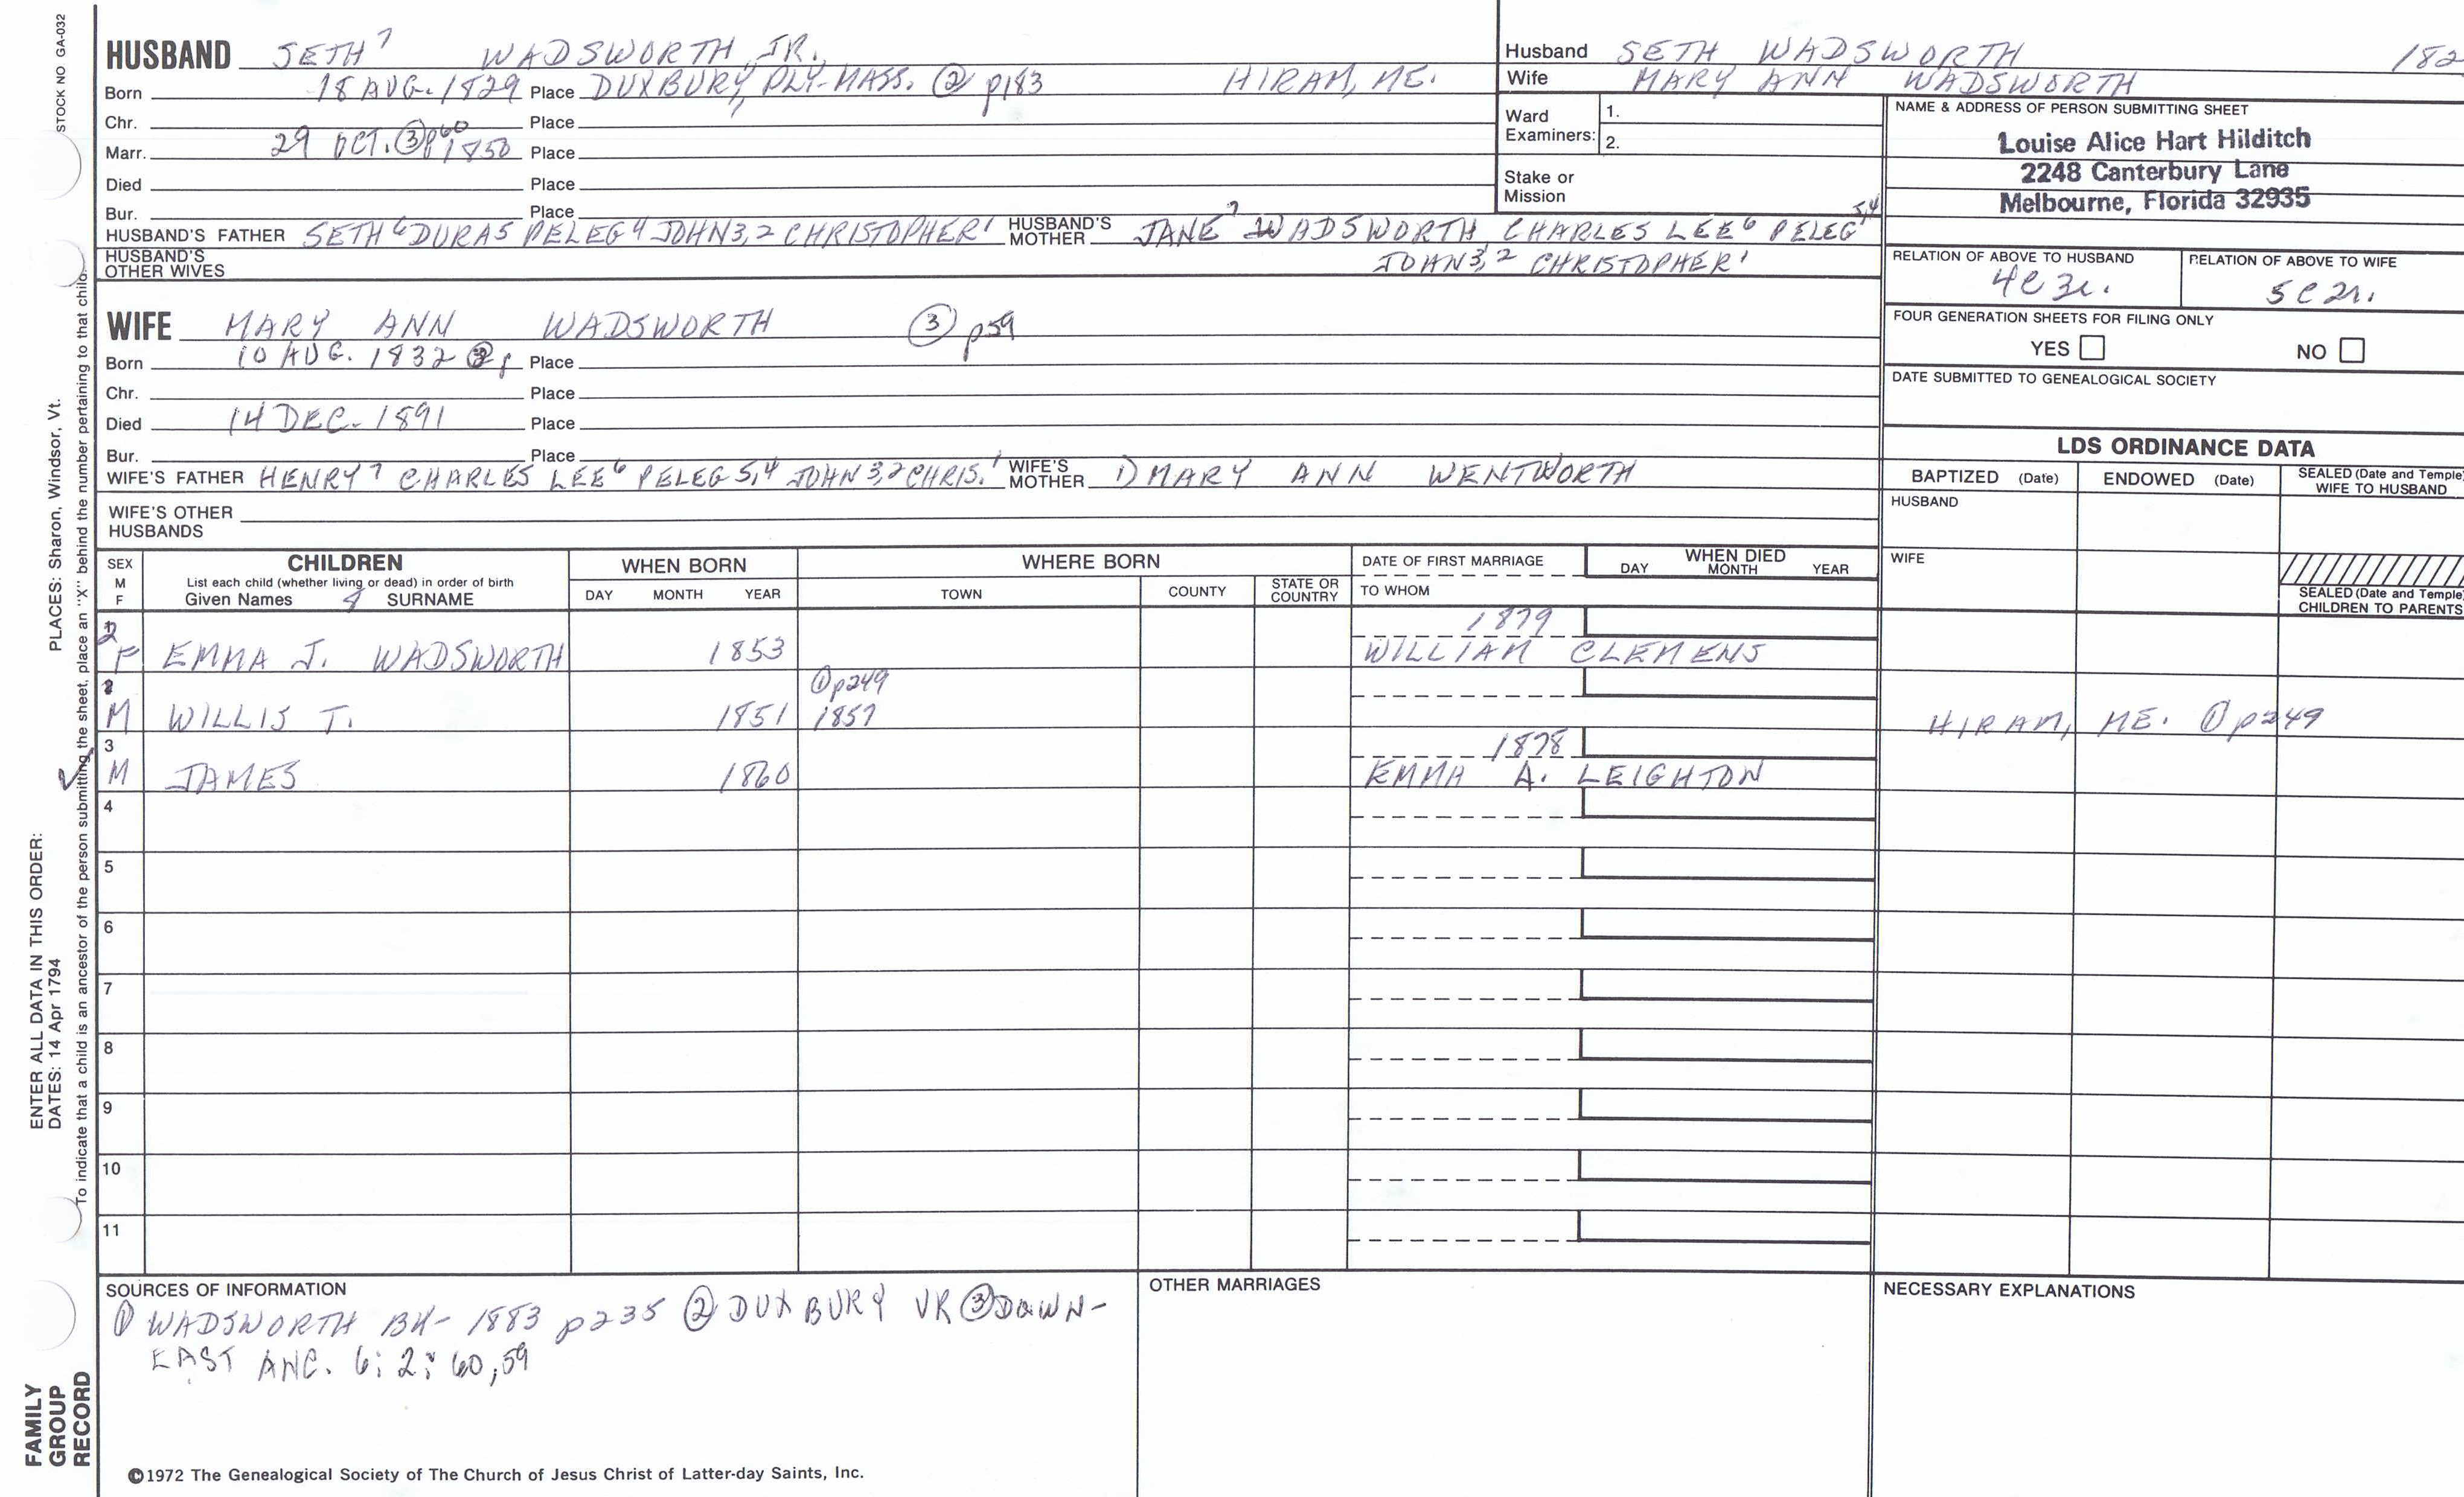 STOCK NO GA-032
HUSBAND SETH 7 WADSWORTH JR.
Born 18 AUG. 1829 Place DUXBURY, PLY. MASS. ② p183 HIRAM, ME.
Chr. Place
Marr. 29 OCT. ③p60 1850 Place
Died Place
Bur. Place
HUSBAND'S FATHER SETH 6 DURA 5 PELEG 4 JOHN 3,2 CHRISTOPHER 1 HUSBAND'S MOTHER JANE 7 WADSWORTH, CHARLES LEE 6 PELEG 5,4
JOHN 3,2 CHRISTOPHER 1
HUSBAND'S OTHER WIVES
Husband SETH WADSWORTH 182
Wife MARY ANN WADSWORTH
Ward Examiners: 1.
2.
Stake or Mission
NAME & ADDRESS OF PERSON SUBMITTING SHEET
Louise Alice Hart Hilditch
2248 Canterbury Lane
Melbourne, Florida 32935
RELATION OF ABOVE TO HUSBAND RELATION OF ABOVE TO WIFE
4C 3r. 5C 2r.
FOUR GENERATION SHEETS FOR FILING ONLY
YES NO
DATE SUBMITTED TO GENEALOGICAL SOCIETY
WIFE MARY ANN WADSWORTH ③ p59
Born 10 AUG. 1832 Place
Chr. Place
Died 14 DEC. 1891 Place
Bur. Place
WIFE'S FATHER HENRY 7 CHARLES LEE 6 PELEG 5,4 JOHN 3,2 CHRIS. 1 WIFE'S MOTHER 1) MARY ANN WENTWORTH
WIFE'S OTHER HUSBANDS
LDS ORDINANCE DATA
BAPTIZED (Date) ENDOWED (Date) SEALED (Date and Temple) WIFE TO HUSBAND
HUSBAND
WIFE
SEALED (Date and Temple) CHILDREN TO PARENTS
SEX M F CHILDREN WHEN BORN WHERE BORN DATE OF FIRST MARRIAGE WHEN DIED
List each child (whether living or dead) in order of birth
Given Names SURNAME DAY MONTH YEAR TOWN COUNTY STATE OR COUNTRY TO WHOM DAY MONTH YEAR
2 1879
F EMMA J. WADSWORTH 1853 WILLIAM CLEMENS
①p249
M WILLIS T. 1851 1857 HIRAM, ME. ① p249
3 1878
M JAMES 1860 EMMA A. LEIGHTON
4
5
6
7
8
9
10
11
SOURCES OF INFORMATION
① WADSWORTH BK- 1883 p235 ② DUXBURY VR ③ DOWN-
EAST ANC. 6:2: 60,59
OTHER MARRIAGES
NECESSARY EXPLANATIONS
©1972 The Genealogical Society of The Church of Jesus Christ of Latter-day Saints, Inc.
FAMILY GROUP RECORD
ENTER ALL DATA IN THIS ORDER:
DATES: 14 Apr 1794 PLACES: Sharon, Windsor, Vt.
To indicate that a child is an ancestor of the person submitting the sheet, place an "X" behind the number pertaining to that child.